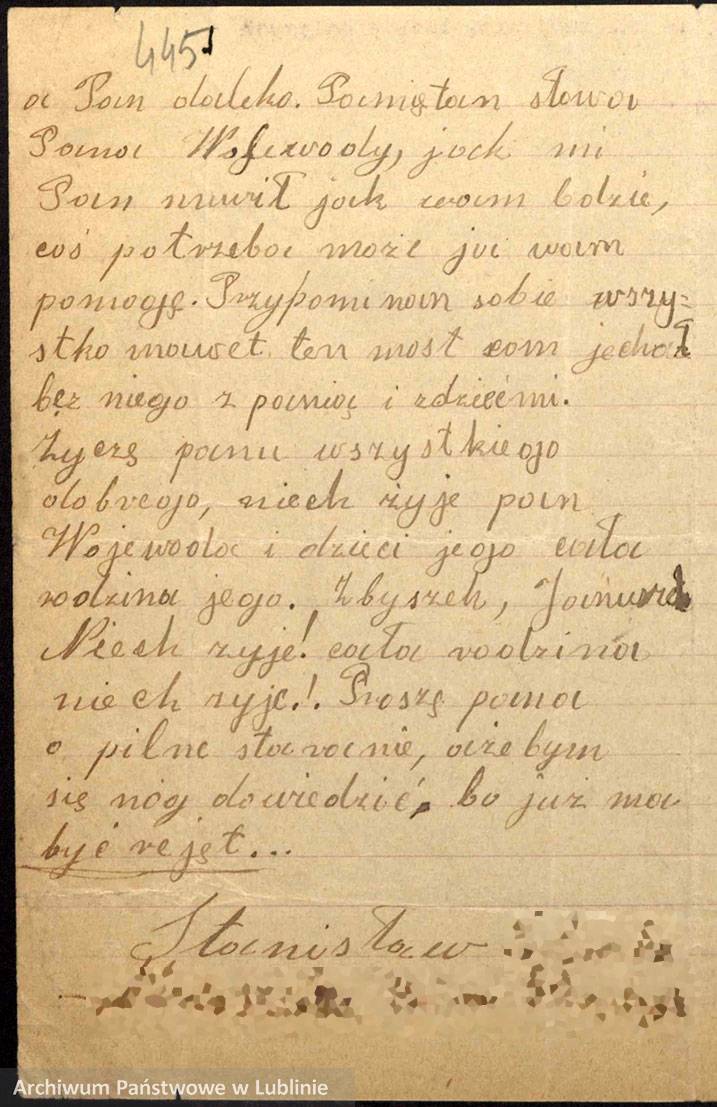 445
a Pan daleko. Pamiętan słowa
Pana Wojewody, jack mi
Pan muwił jak wam bdzie,
coś potrzeba może ja wam
pomogję. Przypominan sobie wszy=
stko nawet ten most com jechał
bez niego z panią i zdziećmi.
Życzę panu wszystkiego
dobrego, niech żyje pan
Wojewoda i dzieci jego cała
rodzina jego. Zbyszek,
Niech zyje! cała rodzina
niech zyje.!. Proszę pana
o pilne staranie, ażebym
się nóg dowiedzić, bo już ma
być rejęt...
Stanisław
Archiwum Państwowe w Lublinie